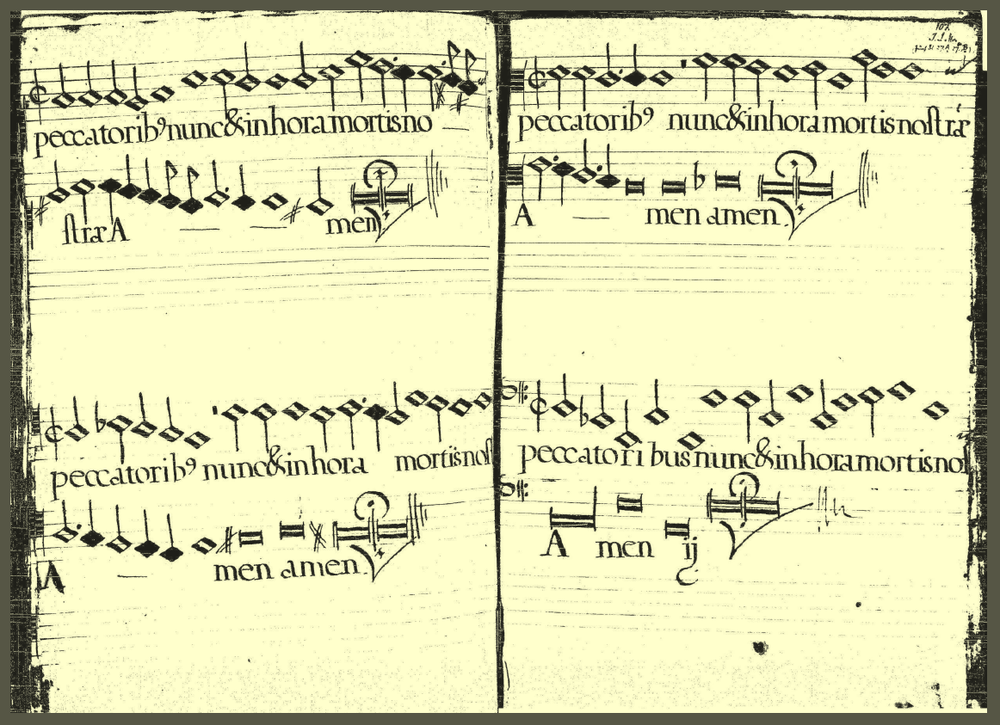 peccatorib⁹ nunc & in hora mortis no
stræ A men
peccatorib⁹ nunc & in hora mortis nostræ
A men amen
peccatorib⁹ nunc & in hora mortis nost
A men amen
peccatori bus nunc & in hora mortis nos
A men ij